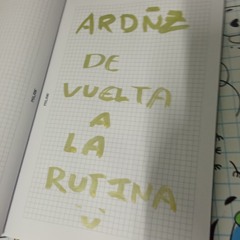 ARDÑZ
DE
VUELTA
A
LA
RUTINA